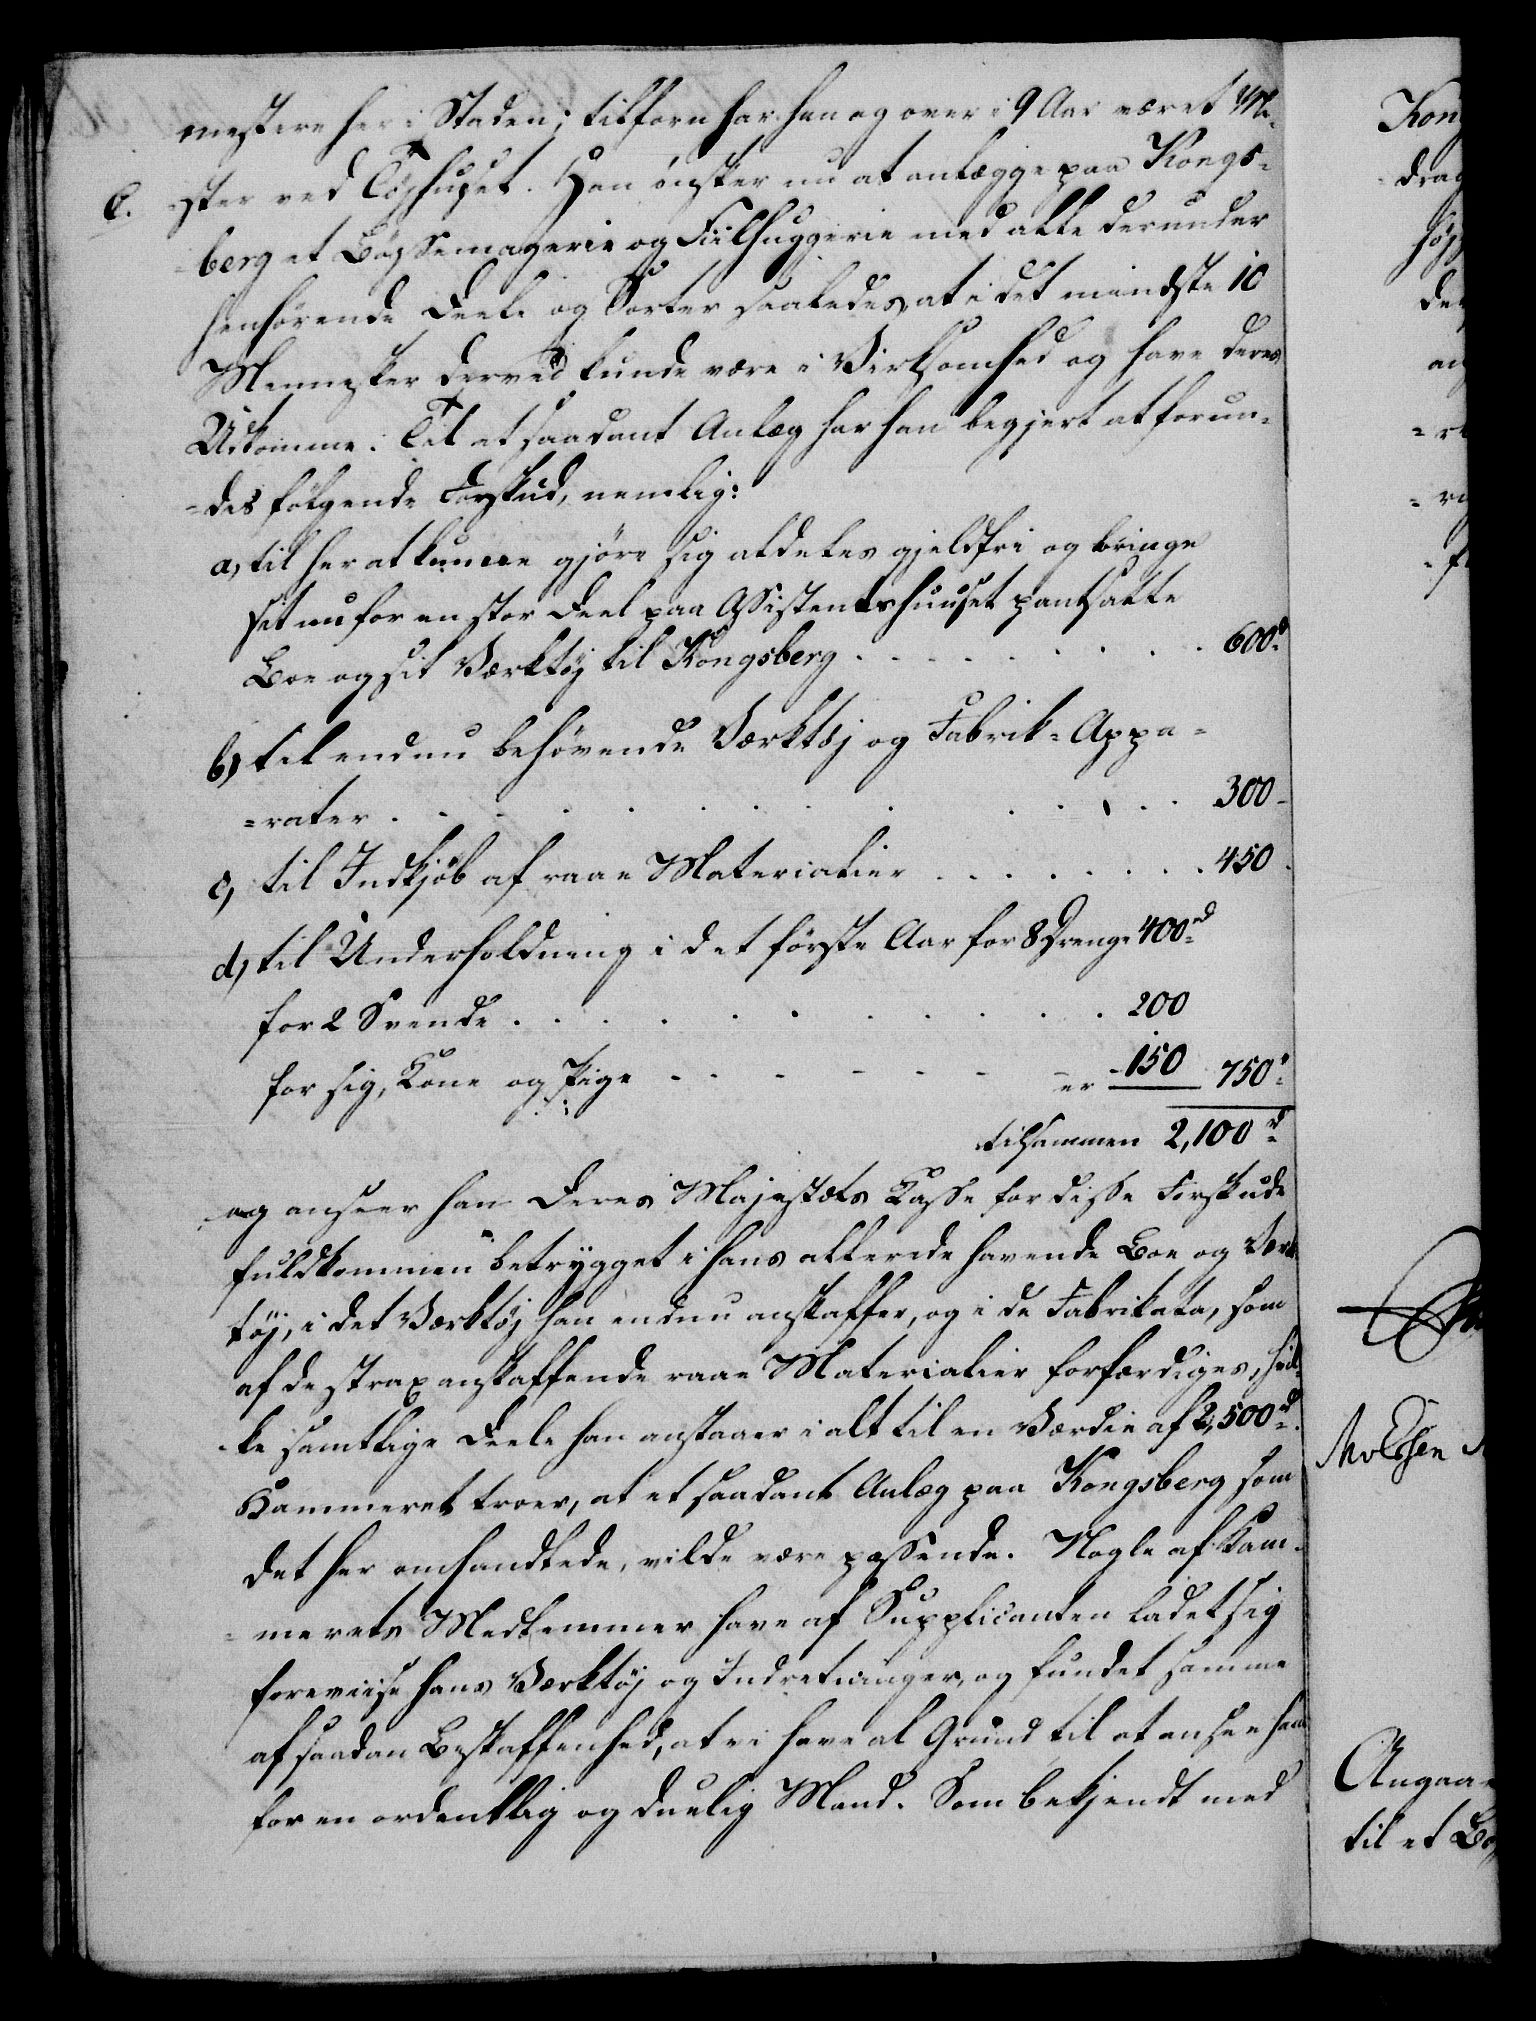 mestere her i Staden; tilforn har han og over i 9 Aar været Me-
C. ster ved Tøjhuset. Han ønsker nu at anlægge paa Kongs-
-berg et Bøssemagerie og Fiilhuggerie med alle derunder
henhørende Deele og Sorter saaledes, at i det mindste 10
Mennesker derved kunde være i Virksomhed og have deres
Udkomme. Til et saadant Anlæg har han begjert at forun-
-des følgende Forskud, nemlig:
a, til her at kunne gjøre sig aldeles gjeldfri og bringe
sit nu for en stor Deel paa Assistentshuuset pantsatte
Boe og sit Værktøj til Kongsberg . . . . . . . . . 600 rd
b, til endnu behøvende Værktøj og Fabrik-Appa-
-rater . . . . . . . . . . . . 300 -
c, til Indkjøb af raae Materialier . . . . . . . . 450 -
d, til Underholdning i det første Aar for 8 Drenge 400 rd
for 2 Svende . . . . . . . . . . 200
for sig, Kone og Pige - - - - - - - er - 150 750 "
tilsammen 2,100 rd
og anseer han Deres Majestæts Kasse for disse Forskude
fuldkommen betrygget i hans allerede havende Boe og Værk-
tøj, i det Værktøj han endnu anskaffer, og i de Fabrikata, som
af de strax anskaffende raae Materialier forfærdiges, hvil-
-ke samtlige Deele han anslaaer i alt til en Værdie af 2,500 rd.
Kammeret troer, at et saadant Anlæg paa Kongsberg som
det her omhandlede, vilde være passende. Nogle af Kam-
-merets Medlemmer have af Supplicanten ladet sig
foreviise hans Værktøj og Indretninger, og fundet samme
af saadan Beskaffenhed, at vi have al Grund til at ansee ham
for en ordentlig og duelig Mand. Som bekjendt med
Kong
drag
Angaa
til et